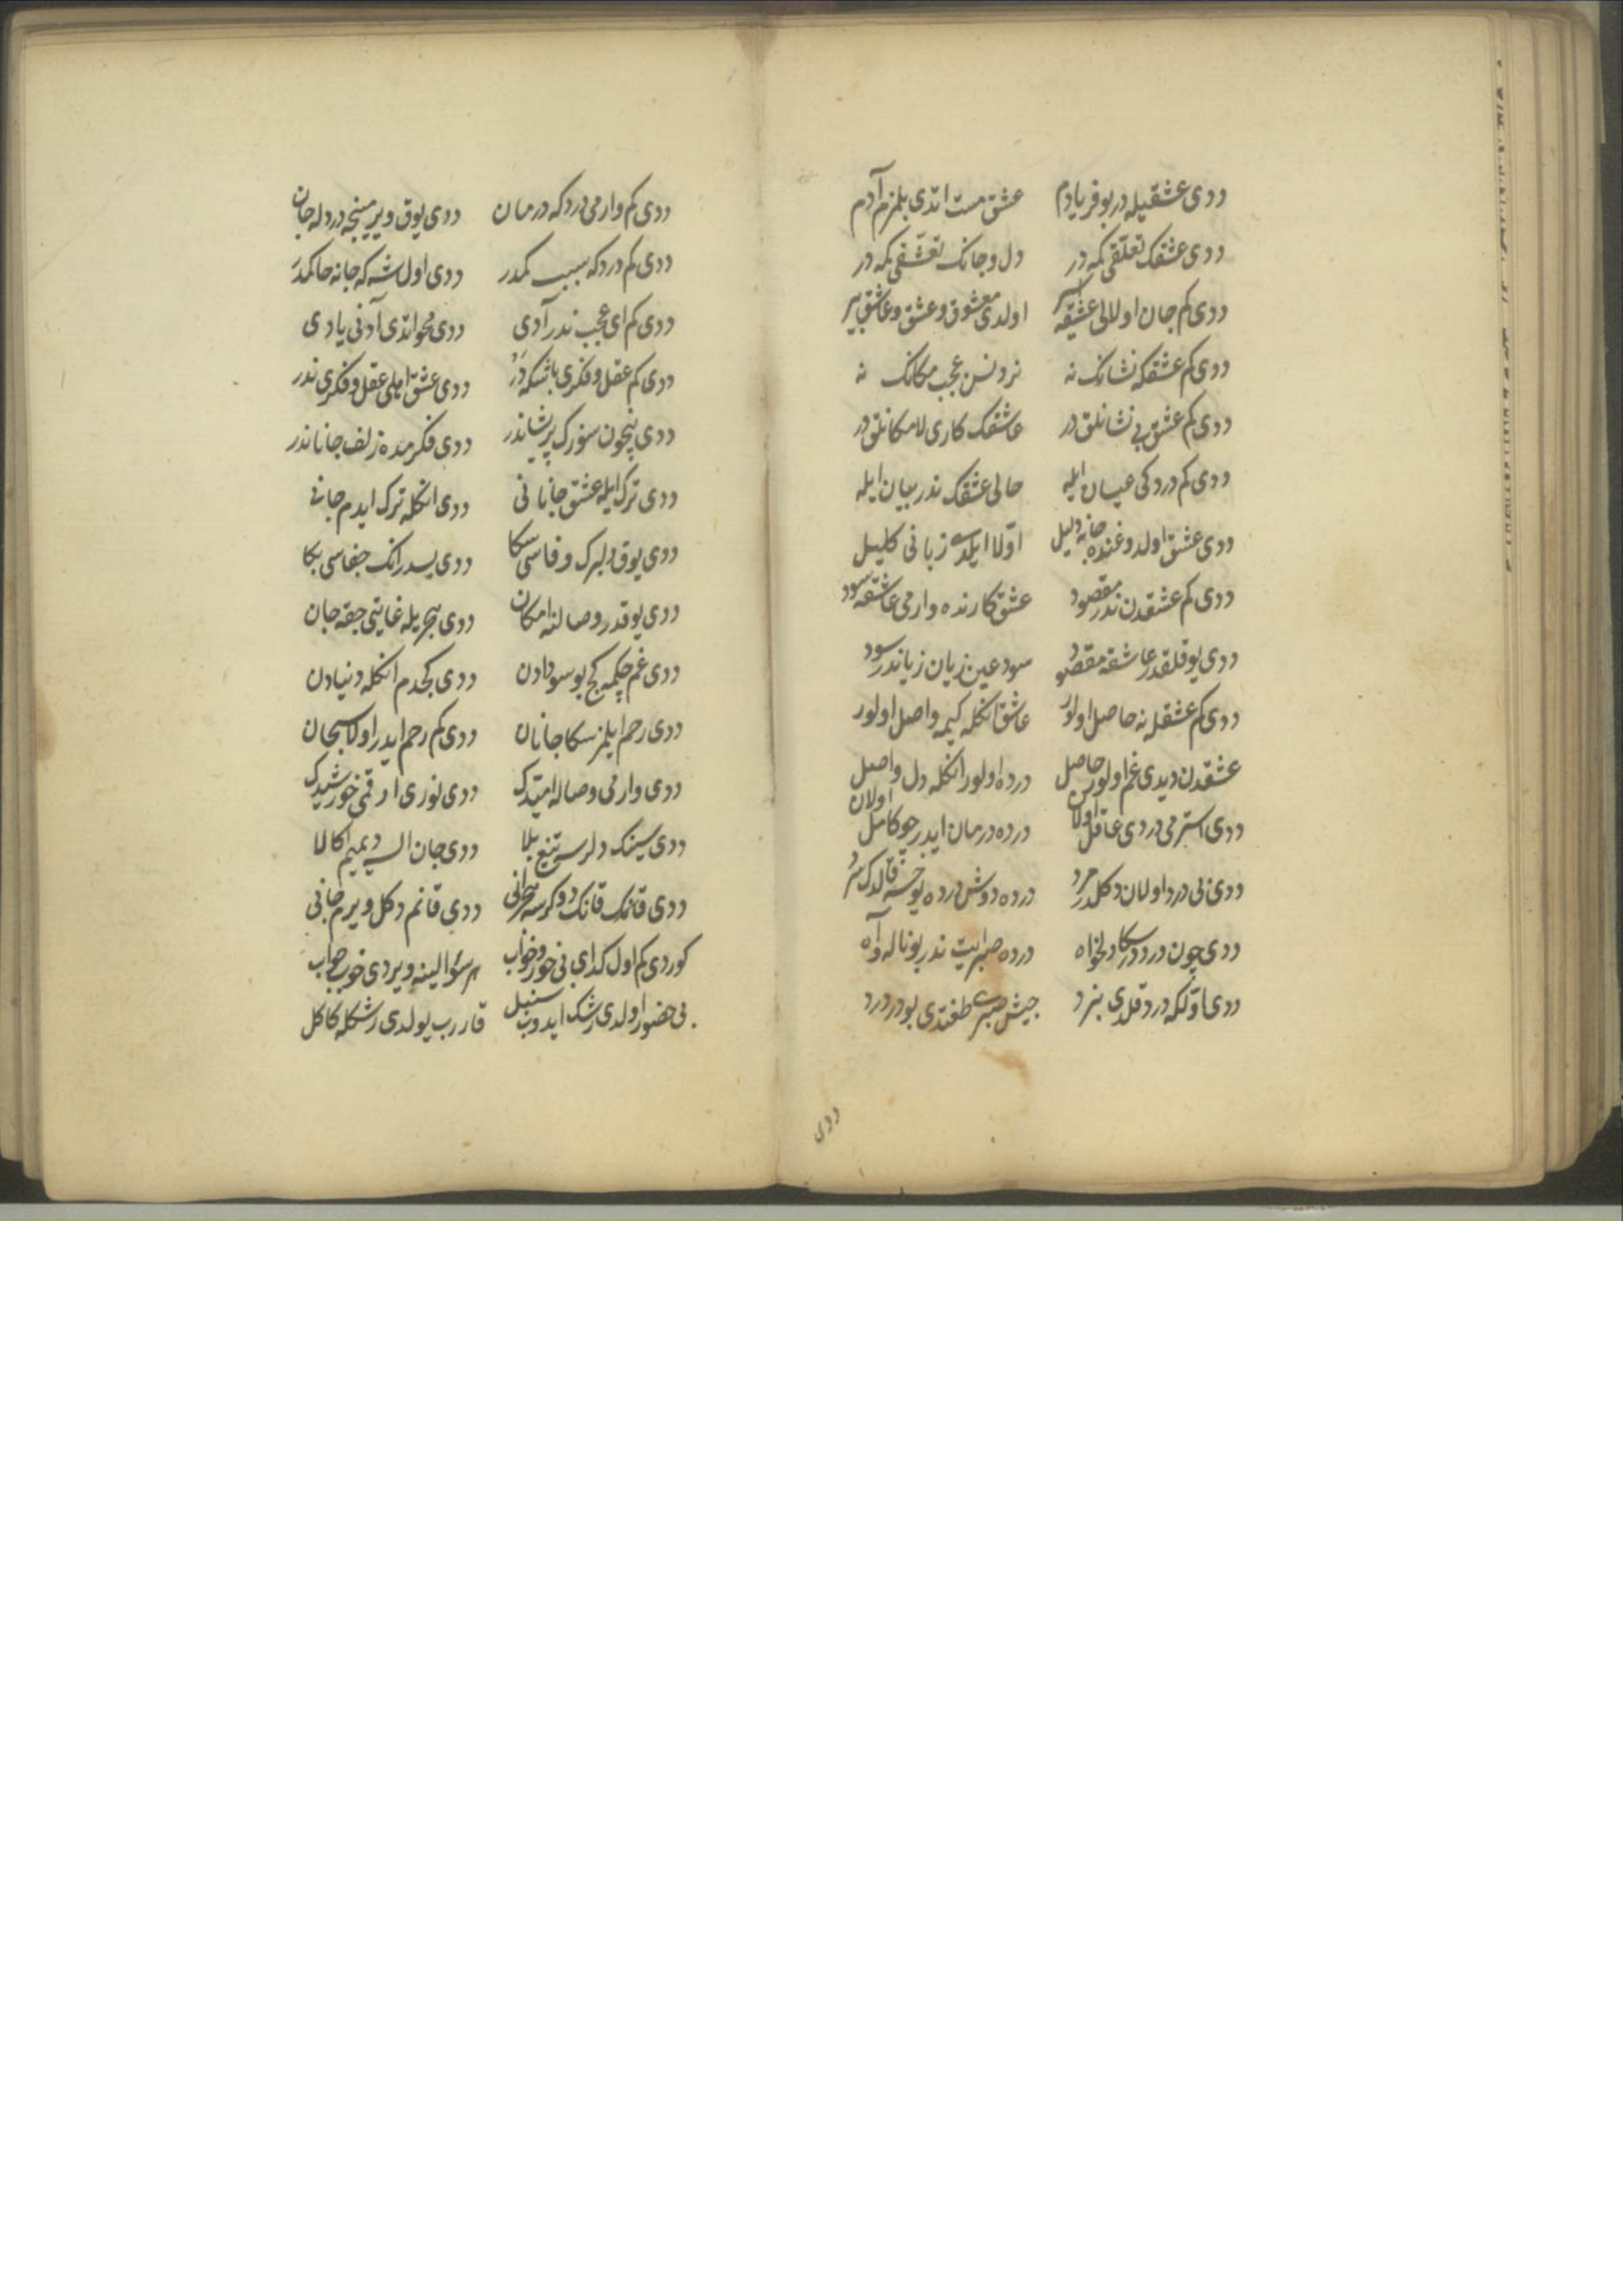 ددی عشقیله در بو فریادم عشق مست اتدی بلمزم آدم
ددی عشقک تعلقی کمه در دل و جانک تعشقی کمه در
ددی کم جان اولالی عشقه اسیر اولدی معشوق و عشق و عاشق بیر
ددی کم عشقکه نشانک نه نردنسن عجب مکانک نه
ددی کم عشق بی نشانلق در عاشقک کاری لامکانلق در
ددی کم دردکی عیان ایله حالی عشقک ندر بیان ایله
ددی عشق اولدوغنده جانه دلیل اولا ایلدی زبانی کلیل
ددی کم عشقدن ندر مقصود عشق کارنده وارمی عاشقه سود
ددی یوقلقدر عاشقه مقصود سود عین زیان زیاندر سود
ددی کم عشقله نه حاصل اولور عاشق انکله کیمه واصل اولور
عشقدن دیدی غم اولور حاصل درده اولور انکله دل واصل
ددی استرمی دردی عاقل اولان درده درمان ایدر چو کامل اولان
ددی بی درد اولان دکلدر مرد درده دوش درده یوخسه قالدک سرد
ددی چون درددر سکا دلخواه درده صبر ایت ندر بو ناله و آه
ددی اولکه درد قلدی بنرد جیش صبری طغتدی بو در درد
ددی
ددی کم وارمی دردکه درمان ددی یوق ویرمینجه درد له جان
ددی کم دردکه سبب کمدر ددی اول شه که جانه حاکمدر
ددی کم ای عجب ندر آدی ددی محو اتدی آدنی یادی
ددی کم عقل و فکری باشکه در ددی عشق اهلی عقل و فکری ندر
ددی نیچون سوزک پریشاندر ددی فکرمده زلف جاناندر
ددی ترک ایله عشق جانانی ددی انکله ترک ایدم جانی
ددی یوق دلبرک وفاسی سکا ددی بسدر انک جفاسی بکا
ددی یوقدر وصالنه امکان ددی هجریله غایتی چقه جان
ددی غم چکمه کچ بو سودادن ددی کچدم انکله دنیادن
ددی رحم ایلمز سکا جانان ددی کم رحم ایدر اولا سبحان
ددی وارمی وصاله امیدک ددی نوری ارقمی خورشیدک
ددی سینک دلرسه تیغ بلا ددی جان السه دیمیم اکا لا
ددی قانمک قانک دوکرسه هجرانی ددی قانم دکل ویرم جانی
کوردی کم اول کدای بی خور و خواب هر سؤالینه ویردی خوب جواب
بی حضور اولدی رشک ایدوب سنبل قارب یولدی رشکله کاکل